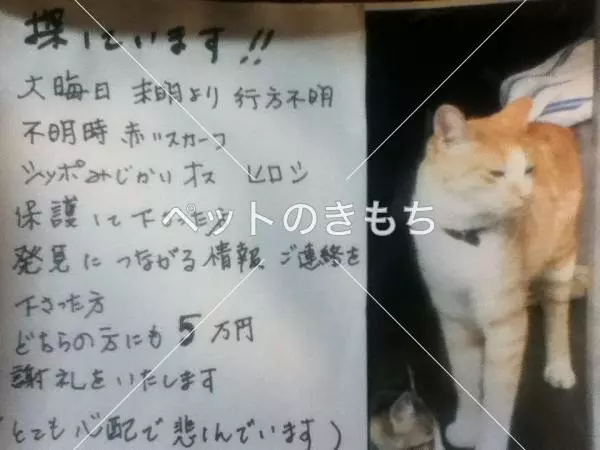 探しています!!
大晦日 未明より 行方不明
不明時 赤いスカーフ
シッポみじかい オス ヒロシ
保護して下さった方
発見につながる情報、ご連絡を
下さった方
どちらの方にも 5万円
謝礼をいたします
(とても心配で悲しんでいます)
ペットのきもち